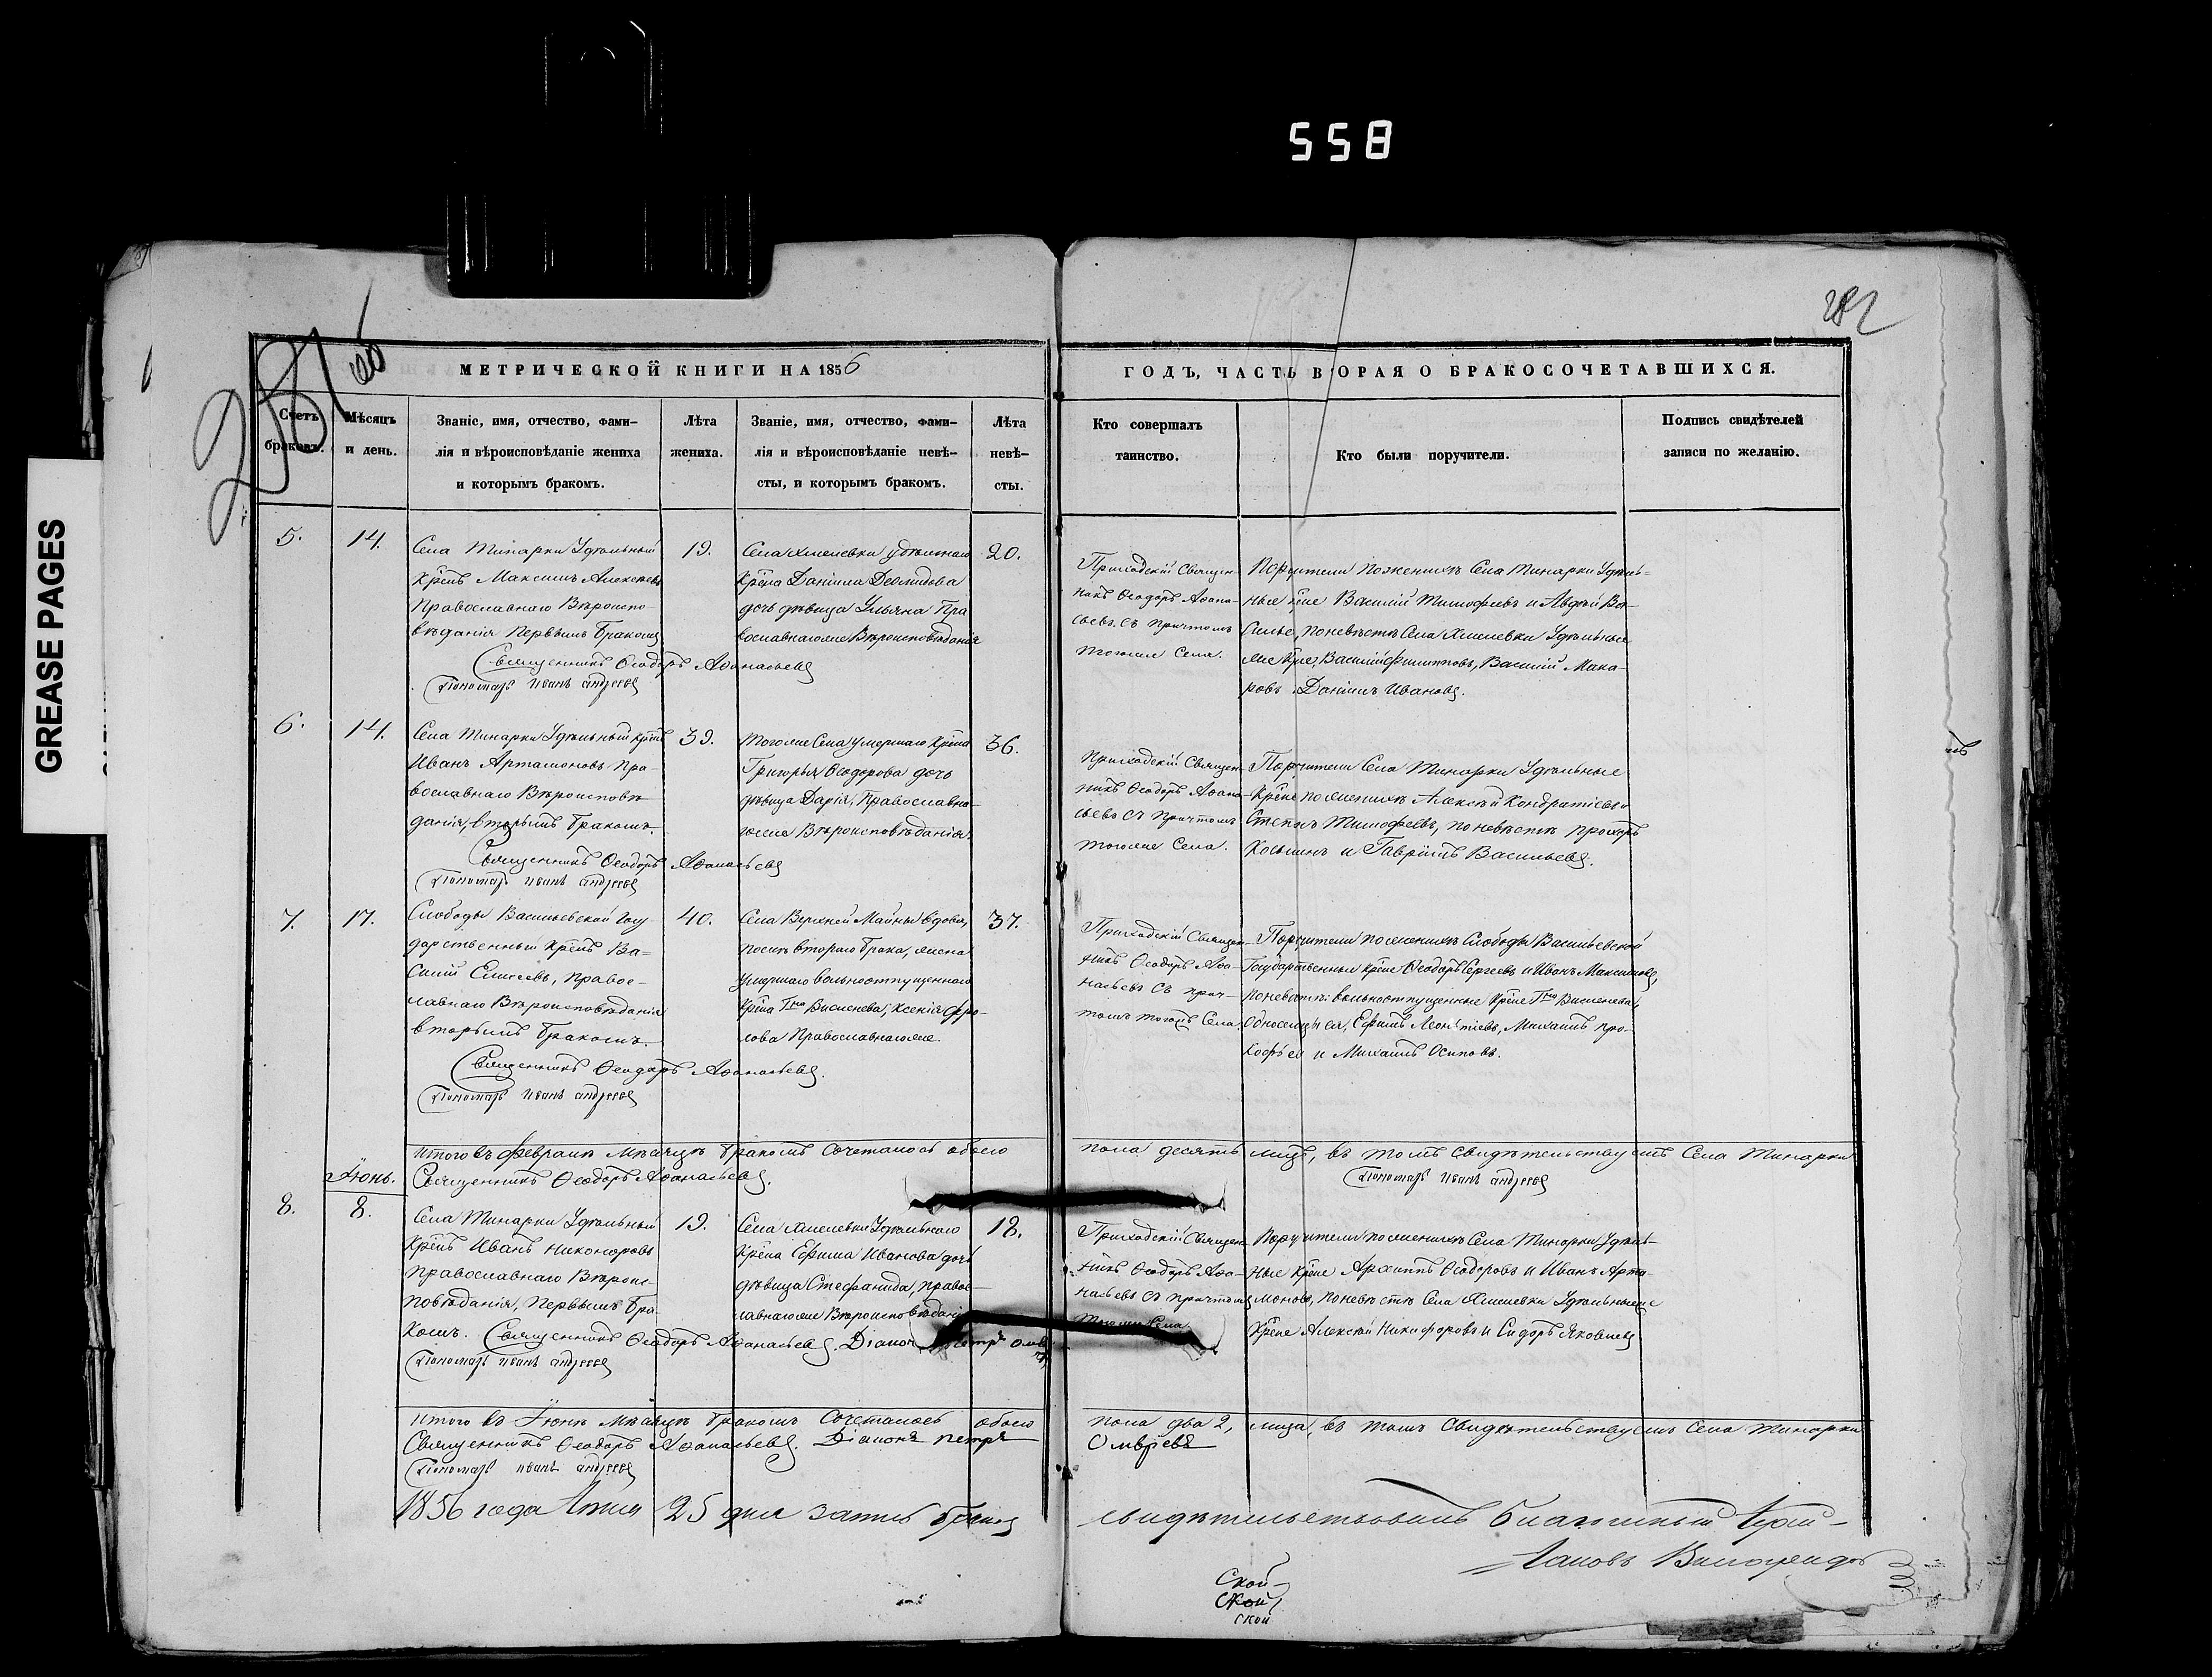 558
GREASE PAGES
281 об
282
МЕТРИЧЕСКОЙ КНИГИ НА 1856
ГОДЪ, ЧАСТЬ ВТОРАЯ О БРАКОСОЧЕТАВШИХСЯ.
Счетъ
браковъ.
Мѣсяцъ
и день.
Званіе, имя, отчество, фами-
лія и вѣроисповѣданіе жениха
и которымъ бракомъ.
Лѣта
жениха.
Званіе, имя, отчество, фами-
лія и вѣроисповѣданіе невѣ-
сты, и которымъ бракомъ.
Лѣта
невѣ-
сты.
Кто совершалъ
таинство.
Кто были поручители.
Подпись свидѣтелей
записи по желанію.
5.
14.
Села Тинарки Удѣльный
Крѣнъ Максимъ Алексѣевъ
Православнаго Вѣроиспо-
вѣданія Первымъ бракомъ
Священникъ Ѳеодоръ Аѳанасьевъ
Пономарь Иванъ Андреевъ
19.
Села Хмелевки удѣльнаго
Крѣна Даніила Демидова
дочь дѣвица Ульяна Пра
вославнагоже Вѣроисповѣданія
20.
Приходскій Священ-
никъ Ѳеодоръ Аѳана-
сьевъ съ причтомъ
тогоже Села.
Поручители Поженихѣ Села Тинарки Удѣль-
ные Крѣне Василій Тимофеевъ и Авдѣй Ва-
сильевъ, поневѣстѣ Села Хмелевки Удѣльные
же Крѣне, Василій Филипповъ, Василій Мака-
ровъ Даніилъ Ивановъ.
6.
14.
Села Тинарки Удѣльный Крѣнъ
Иванъ Артамоновъ Пра-
вославнаго Вѣроисповѣ
данія, вторымъ бракомъ.
Священникъ Ѳеодоръ Аѳанасьевъ
Пономарь Иванъ Андреевъ
39.
Тогоже Села умершаго Крѣна
Григорья Ѳеодорова дочь
дѣвица Дарія, Православна-
гоже Вѣроисповѣданія.
36.
Приходскій Священ-
никъ Ѳеодоръ Аѳана-
сьевъ съ причтомъ
тогоже Села.
Поручители Села Тинарки Удѣльные
Крѣне поженихѣ Алексѣй Кондратьевъ и
Степанъ Тимофеевъ, поневѣстѣ Прохоръ
Косьминъ и Гавріилъ Васильевъ.
7.
17.
Слободы Васильевской Госу-
дарственный Крѣнъ Ва-
силій Елисеевъ, Правос-
лавнаго Вѣроисповѣданія
вторымъ бракомъ.
Священникъ Ѳеодоръ Аѳанасьевъ.
Пономарь Иванъ Андреевъ
40.
Села Верхней Майны вдова,
послѣ втораго брака, жена
умершаго вольноотпущеннаго
Крѣна Гна Висленева, Ксенія Фро-
лова Православнагоже.
37.
Приходскій Священ-
никъ Ѳеодоръ Аѳа-
насьевъ съ прич-
томъ тогожъ Села.
Поручители поженихѣ Слободы Васильевской
Государственные Крѣне Ѳеодоръ Сергеевъ и Иванъ Максимовъ,
поневѣстѣ: вольноотпущенные Крѣне Гна Висленева,
Односельцы ея, Ефимъ Леонтіевъ, Михаилъ Про-
кофьев и Михаилъ Осиповъ.
Итого въ Февралѣ Мѣсяцѣ бракомъ сочеталось обоего
пола десять лицъ, въ томъ Свидѣтельствуемъ Села Тинарки
Священникъ Ѳеодоръ Аѳанасьевъ.
Пономарь Иванъ Андреевъ
Іюнь.
8.
8.
Села Тинарки Удѣльный
Крѣнъ Иванъ Никоноровъ
Православнаго Вѣроис-
повѣданія, Первымъ бра-
комъ. Священникъ Ѳеодоръ Аѳанасьевъ. Діаконъ Петръ
Пономарь Иванъ Андреевъ
19.
Села Хмелевки Удѣльнаго
Крѣна Ефима Иванова дочь
дѣвица Стефанида, Правос-
лавнагоже Вѣроисповѣданія
18.
Приходскій Священ-
никъ Ѳеодоръ Аѳа-
насьевъ съ причтомъ
тогоже Села.
Поручители поженихѣ Села Тинарки Удѣль-
ные Крѣне Архиппъ Ѳеодоровъ и Иванъ Арта-
моновъ, поневѣстѣ Села Хмелевки Удѣльныеже
Крѣне Алексѣй Никифоровъ и Сидоръ Яковлевъ
Итого въ Іюнѣ Мѣсяцѣ бракомъ Сочеталось обоего
пола два 2, лица, въ томъ Свидѣтельствуемъ Села Тинарки
Священникъ Ѳеодоръ Аѳанасьевъ. Діаконъ Петръ
Пономарь Иванъ Андреевъ
1856 года 25 дня запись браковъ
свидѣтельствовалъ Благочинный
ской
ской
ской